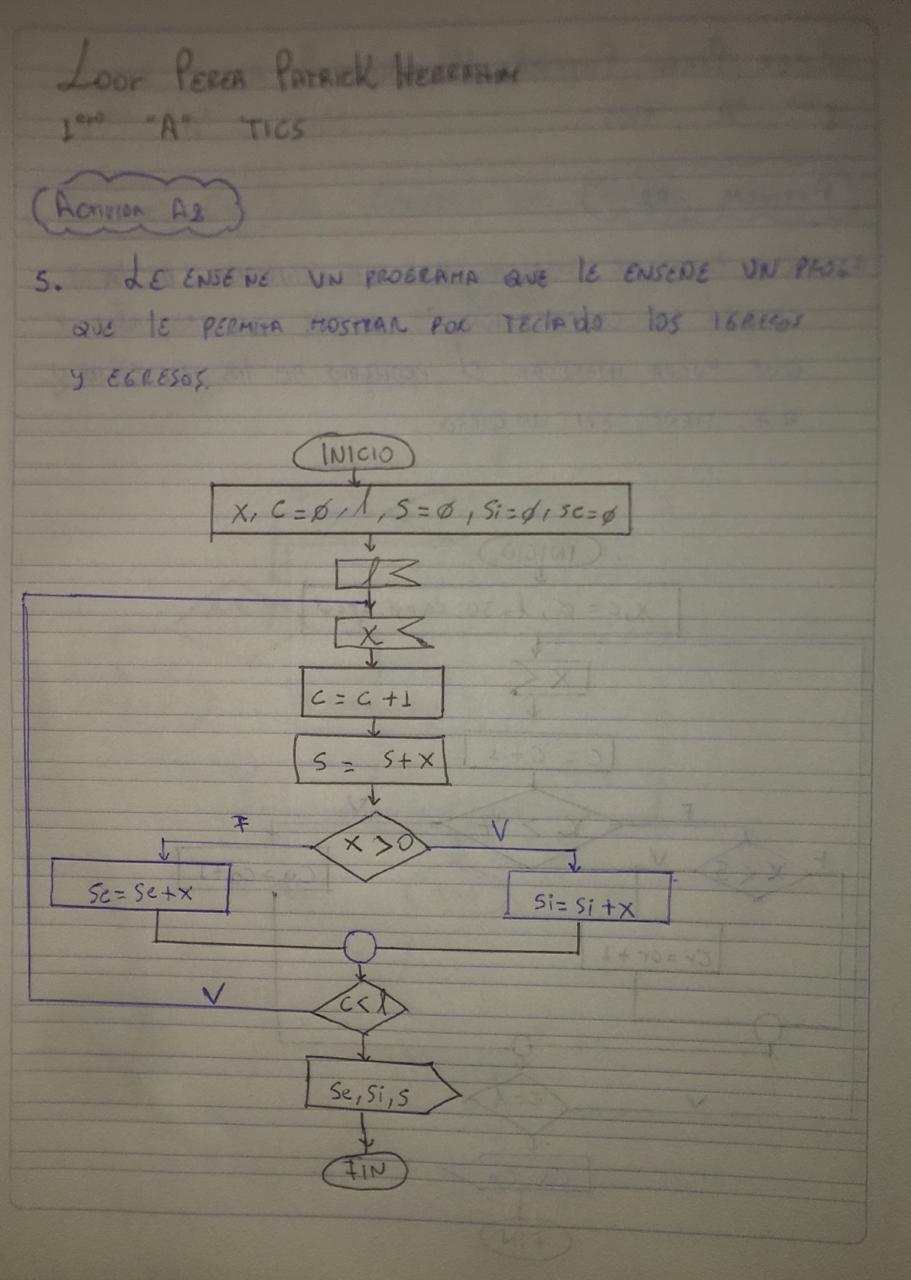 Loor Perea Patrick
1ero "A" TICS
5. LE ENSEÑE UN PROGRAMA QUE lE ENSEÑE UN PROG
QUE lE PERMITA MOSTRAR POR TEClAdO lOS IGRESOS
Y EGRESOS.
INICIO
X, C=Ø, l, S=Ø, Si=Ø, Se=Ø
l
X
C = C +1
S = S+X
X >0
F
V
Se= Se+X
Si= Si+X
C< l
V
Se, Si, S
FIN